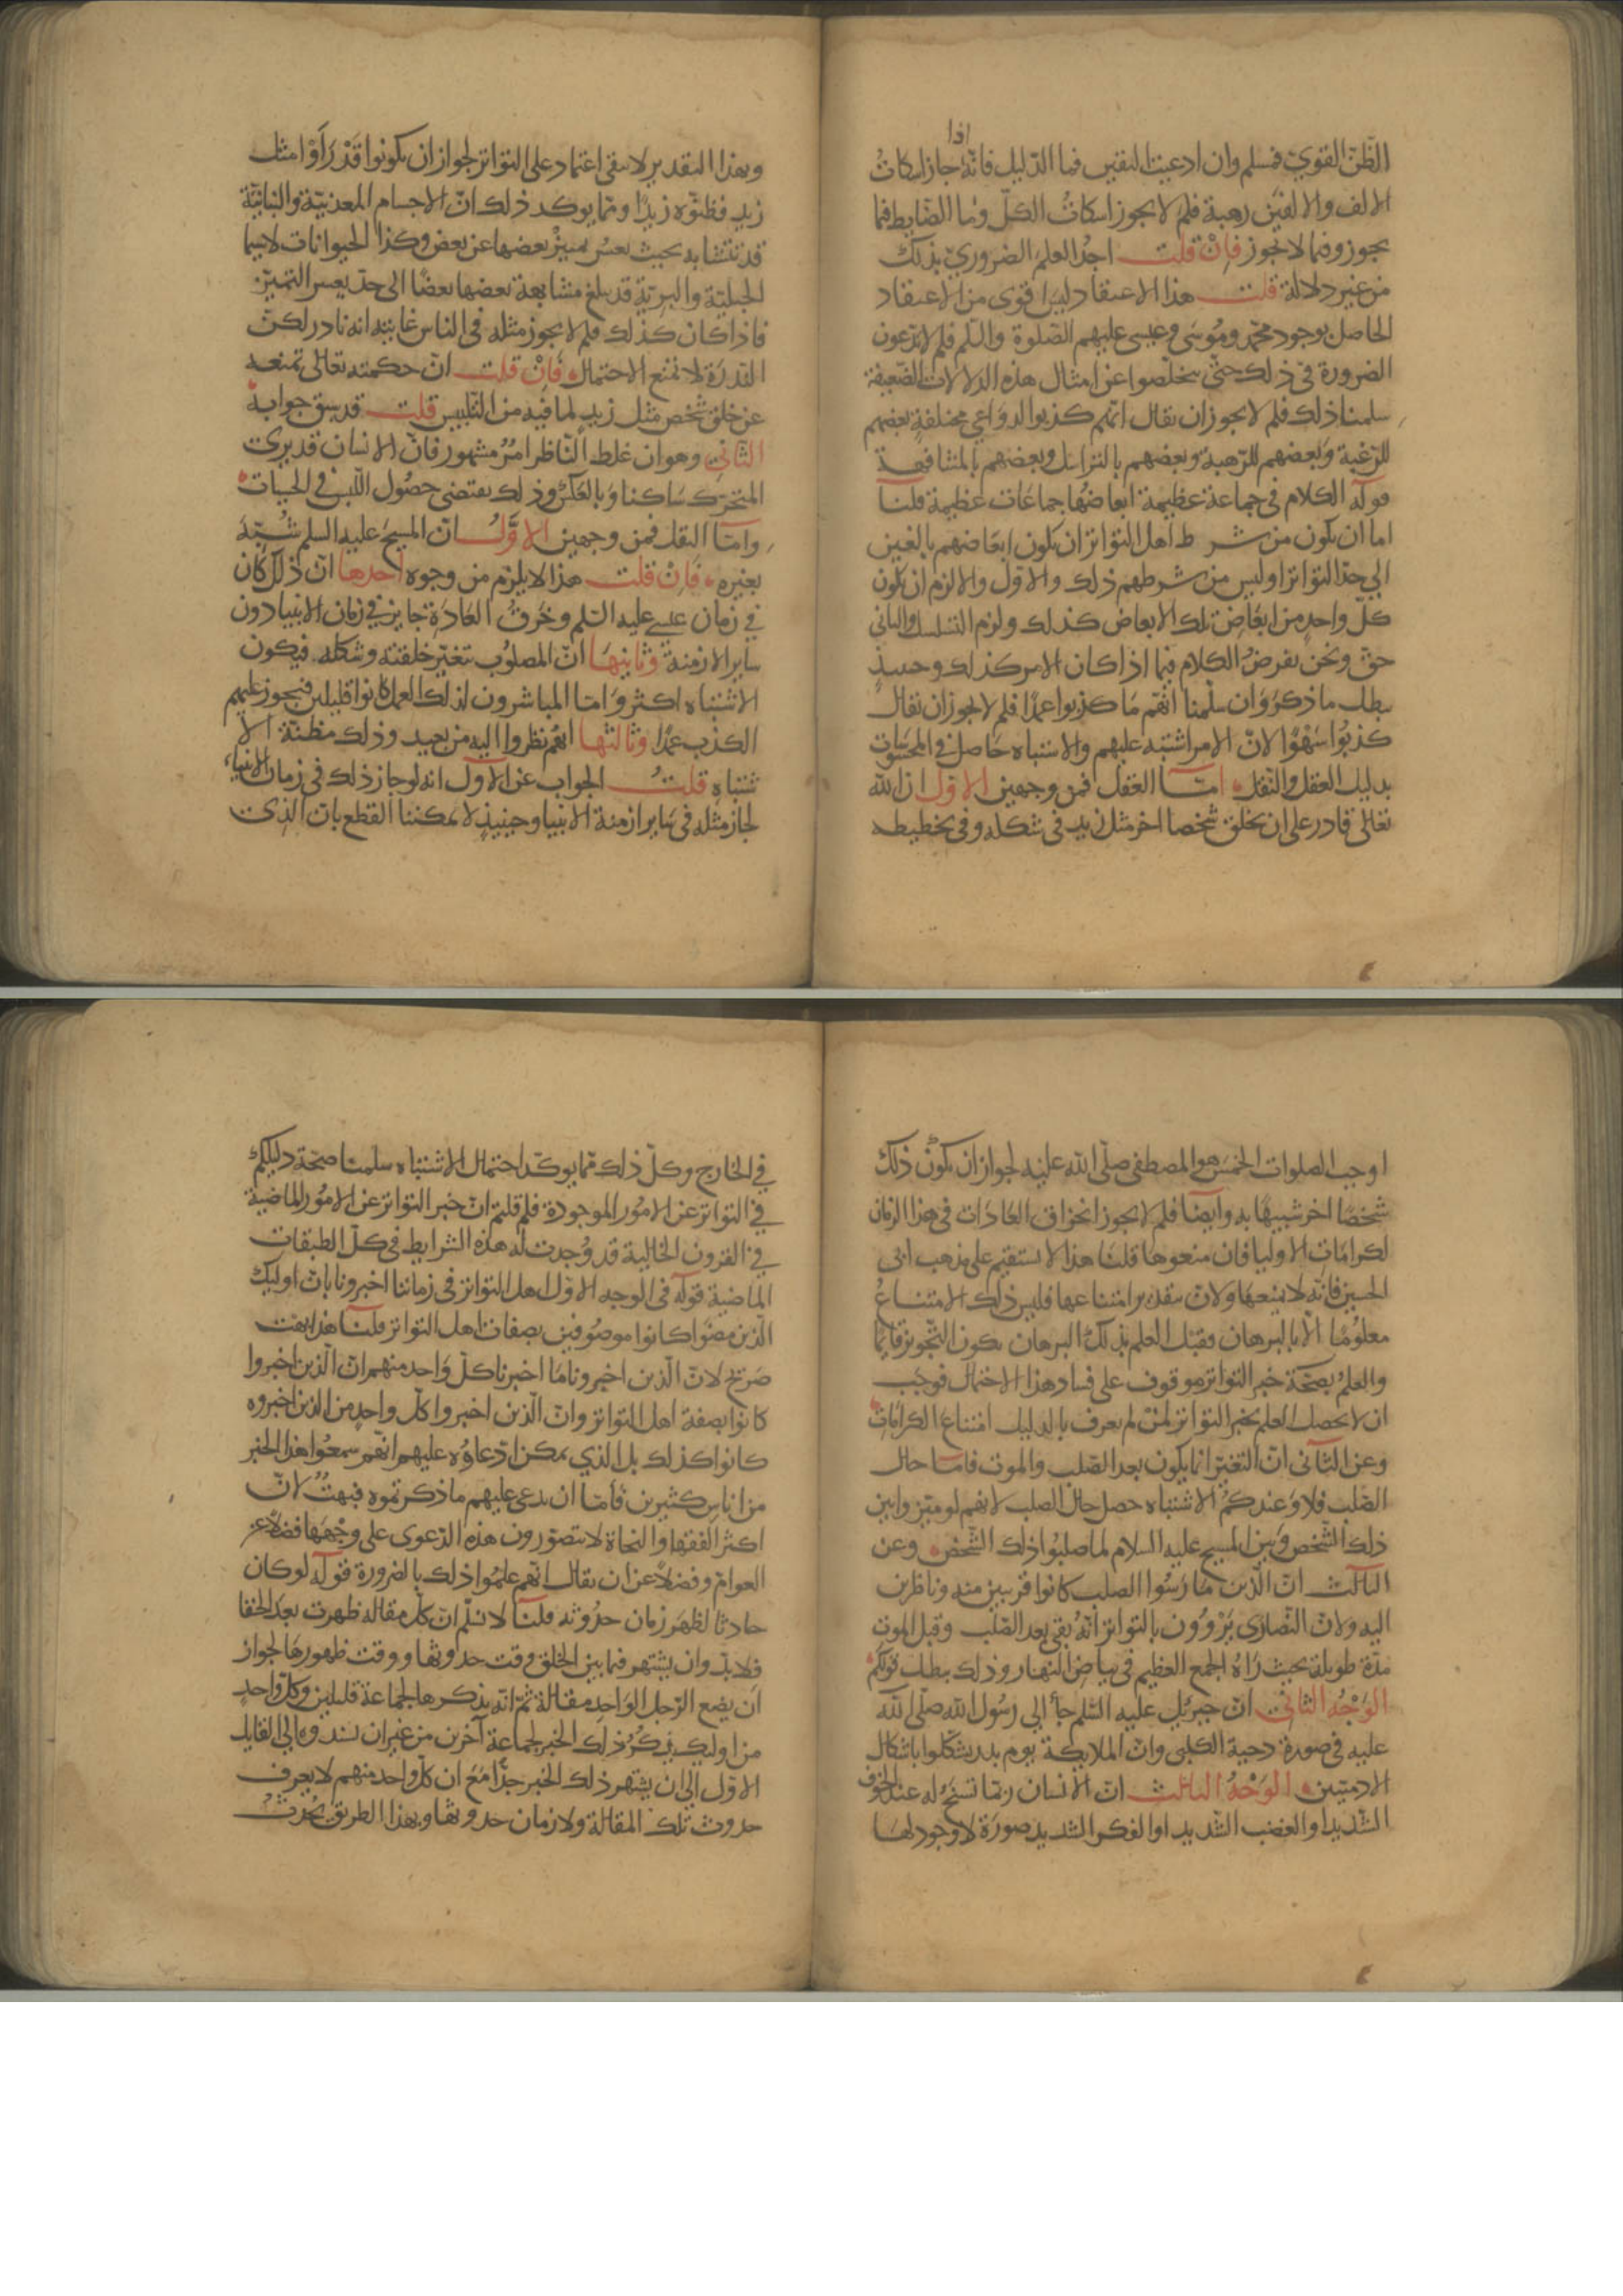 اذا
الظنّ القويّ فمسلم وان ادعيت اليقين فما الدّليل فانّه جاز اسكاتُ
الالف والالفين رهبة فلم لا يجوز اسكاتُ الكلّ وما الضابط فيما
يجوز وفيما لا يجوز فإن قلت اجد العلم الضروريّ بذلك
من غير دلالة قلت هذا الاعتقاد ليس اقوى من الاعتقاد
الحاصل بوجود محمّد وموسى وعيسى عليهم الصّلوة والسّلم فلم لا تدّعون
الضرورة في ذلك حتّى تخلّصوا عن امثال هذه الدلالات الضعيفة
سلمنا ذلك فلم لا يجوز ان يقال انّهم كذبوا لدواعي مختلفةٍ بعضهم
للرّغبة وبعضهم للرّهبة وبعضهم بالتراسل وبعضهم بالمشافهة
قوله الكلام في جماعة عظيمة ابعاضُها جماعات عظيمة قلنا
اما ان يكون من شرط اهل التواتر ان يكون ابعاضهم بالغين
الى حدّ التواتر او ليس من شرطهم ذلك والاوّل والا لزم ان يكون
كلّ واحدٍ من ابعاض تلك الابعاض كذلك ولزم التسلسل والثاني
حقّ ونحن نفرضُ الكلام فيما اذا كان الامر كذلك وحينيذٍ
بطل ما ذكروَ وان سلّمنا انّهم مَا كذبوا عمدًا فلم لا يجوز ان يقال
كذبوُا سَهْوًا لانّ الامر اشتبه عليهم والاشتباه حَاصل في المحسوسات
بدليل العقل والنّقل امّا العقل فمن وجهين الاوّل ان الله
تعالى قادر على ان يخلق شخصا اخر مثل زيد في شكله وفي تخطيطه
وبهذا التقدير لا يبقى اعتماد على التواتر لجواز ان يكونوا قَدْ رَأوْا مثل
زيدٍ فظنّوه زيدًا ومّما يوكد ذلك انّ الاجسام المعدنيّة والنباتيّة
قد تتشابه بحيث يعسُر تمييزُ بعضها عن بعض وكذا الحيوانات لا سيما
الجبليّة والبريّة قد يبلغ مشابهة بعضها بعضًا الى حدّ يعسر التمييز
فاذا كان كذلك فلم لا يجوز مثله في الناس غايته انه نادر لكنّ
النّدرة لا تمنع الاحتمال فَإنْ قلت انّ حكمته تعالى تمنعه
عن خلق شخص مثل زيدٍ لما فيه من التّلبيس قلت قد سبق جوابهُ
الثاني وهو ان غلط النّاظر امرٌ مشهور فانّ الانسان قد يرى
المتحرّك سَاكنا وَبالعكس وذلك يقتضى حصُول اللّبس في الحسيات
وامّا النقل فمن وجهين الاوّلُ انّ المسيحَ عليه السلم شُبّهَ
بغيره فَإنْ قلت هذا لا يلزم من وجوه احدها انّ ذلك كان
في زمان عيسى عليه السّلم وخَرقُ العَادَةِ جايز في زمان الانبيا دون
ساير الازمنة وثانيهَا انّ المصلوُب تتغيّر خلقته وشكله فيكون
الاشتباه اكثر وَامّا المباشرون لذلك العمل كانوا قليلين فيجوز عليهم
الكذب عمدًا وثالثها انّهم نظروا اليه من بعيد وذلك مظنة الا
شتباه قلتُ الجواب عن الاول انه لو جاز ذلك في زمان الانبياء
لجاز مثله في سَاير ازمنة الانبيا وحينيذٍ لا يمكننا القطع بان الّذى
اوجب الصلوات الخمسَ هو المصطفى صلّى الله عليه لجواز ان يكونُ ذلك
شخصًا اخر شبيهًا به وايضًا فلم لا يجوز انخراق العَادَات في هذا الزمان
لكرامَات الاوليا فان منعوها قلنَا هذا لا يستقيم على مذهب ابى
الحسين فانّه لا يمنعها ولانّ بتقدير امتناعها فليس ذلك الامتناعُ
معلوُمًا الّا بالبرهان فقبل العلم بذلك البرهان يكون التّجويز قايمًا
والعلمُ بصحّة خبر التواتر موقوف على فساد هذا الاحتمال فوجب
ان لا يحصل العلم بخبر التواتر لمن لم يعرف بالدليل امتناع الكرامَات
وعن الثّانى انّ التغيّر انما يكون بعد الصّلب والموت فامّا حال
الصّلب فلا وَعندكمُ الاشتباه حصل حال الصلب لانهم لو ميّزوا بين
ذلك الشّخص وبين المسيح عليه السلام لما صلبُوا ذلك الشّخصَ وعن
الثالث انّ الّذين مَارَسُوا الصلب كانوا قريبين منه وناظرين
اليه ولانّ النّصارَى يَرْوُون بالتواتر أنّهُ بقي بعد الصّلب وقبل الموتِ
مدّة طويلة بحيث رَاهُ الجمع العظيم في بياض النّهار وذلك يبطل قولكمْ
الوَجْهُ الثانى انّ جبرئيل عليه السّلم جاء الى رسُول الله صلّى الله
عليه في صورة دحية الكلبى وانّ الملايكة يوم بدر تشكّلوا باشكال
الادميّين الوَجْهُ الثالث انّ الانسان ربّما تسنَحُ له عند الخوف
الشّديد او الغضب الشّديد او الفكر الشديد صورَة لا وجود لهَا
في الخارج وكلّ ذلك ممّا يوكّد احتمال الاشتباه سلّمنا صحّة دليلكم
في التواتر عن الامُور الموجودة فلم قلتم انّ خبر التواتر عن الامور الماضية
في القرون الخالية قد وُجدت له هذه الشرايط في كلّ الطبقات
الماضية قوله في الوجه الاوّل اهل التواتر في زماننا اخبرونا بانّ اوليك
الّذين مضوا كانوا موصُوفين بصفات اهل التواتر قلنا هذا بهت
صَريح لانّ الّذين اخبرونا مَا اخبرنا كلّ وَاحد منهم انّ الّذين اخبروا
كانوا بصفة اهل التواتر وانّ الّذين اخبروا كلّ واحدٍ من الذين اخبروه
كانوا كذلك بل الذي يمكن ادّعاؤه عليهم انّهم سمعُوا هذا الخبر
من اناسٍ كثيرين فأمّا ان يدعى عليهم ما ذكرتموه فبهتٌ لانّ
اكثر الفقها والنحاة لا يتصوّرون هذه الدّعوى على وجْهِهَا فضلًا عن
العوام وفضلًا عن ان يقال انّهم علمُوا ذلك بالضرورة قوله لو كان
حادثا لظهَر زمان حدُوثه قلنا لا نسلّم انّ كلّ مقاله ظهرت بعد الخفا
فلا بدّ وان يشتهر فيما بين الخلق وقت حدوثها ووقت ظهورهَا لجواز
ان يضع الرّجل الوَاحد مقالة ثمّ انّه يذكرها لجماعة قليلين وَكلّ واحدٍ
من اوليك يذكرُ ذلك الخبر لجماعة آخرين من غير ان يسندوه الى القايل
الاوّل الى ان يشتهر ذلك الخبر جدّا مَعَ ان كلّ واحد منهم لا يعرف
حدوث تلك المقالة ولا زمان حدوثها وبهذا الطريق يحْدثُ